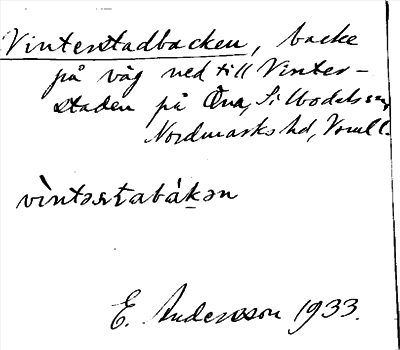 Vinterstadbacken, backe
på väg ned till Vinter-
staden på Öna, Silbodals sn,
Nordmarks hd, Vrml.
vìntərstabákən
E. Andersson 1933.